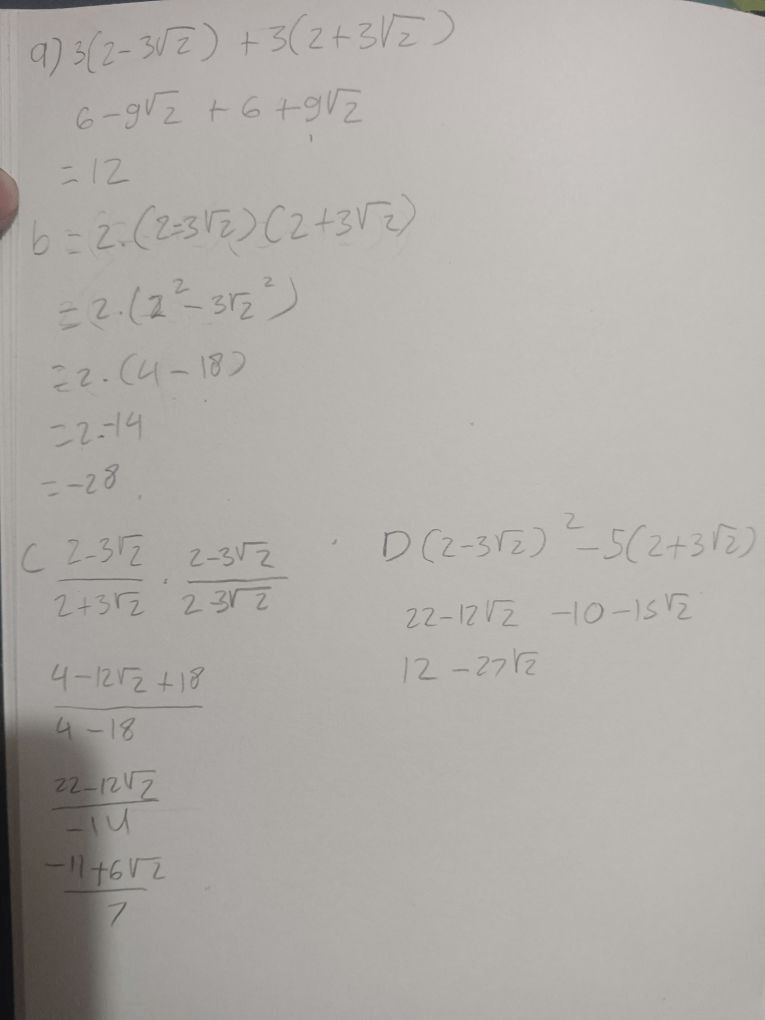 a) 3(2-3√2) +3(2+3√2)
6-9√2 + 6 +9√2
=12
b = 2.(2-3√2)(2+3√2)
=2.(2²-3√2²)
=2.(4-18)
=2.-14
=-28
C (2-3√2)/(2+3√2) . (2-3√2)/(2-3√2)
(4-12√2+18)/(4-18)
(22-12√2)/(-14)
(-11+6√2)/7
D (2-3√2)²-5(2+3√2)
22-12√2 -10-15√2
12-27√2